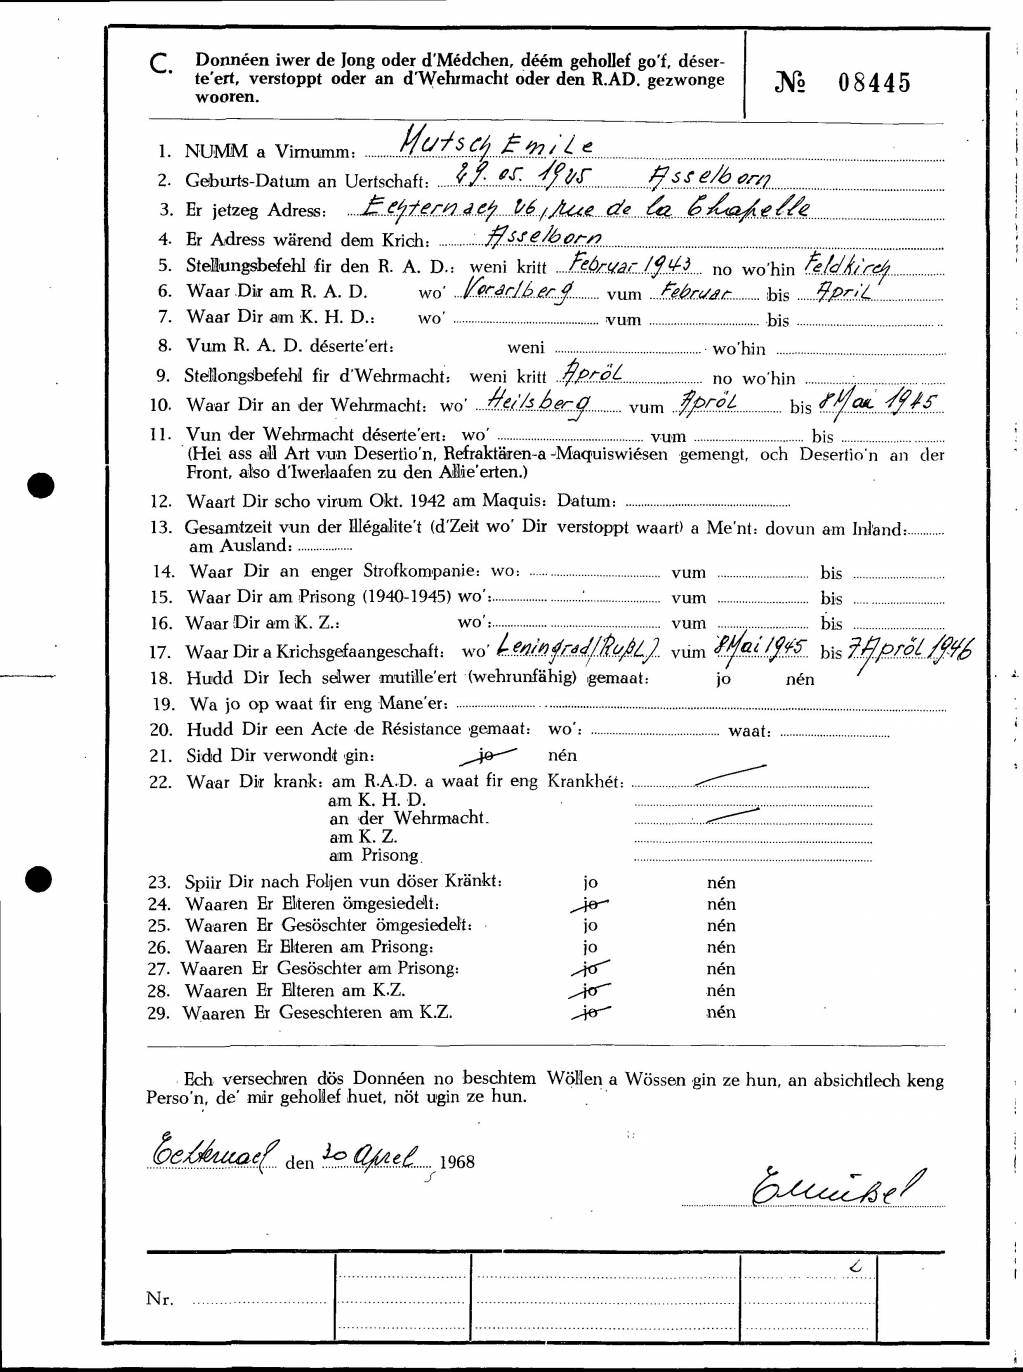 C. Donnéen iwer de Jong oder d'Médchen, déém gehollef go'f, déser-
te'ert, verstoppt oder an d'Wehrmacht oder den R.AD. gezwonge
wooren.
№ 08445
1. NUMM a Virnumm: Mutsch Emile
2. Geburts-Datum an Uertschaft: 29. 05. 1925 Asselborn
3. Er jetzeg Adress: Echternach 26, rue de la Chapelle
4. Er Adress wärend dem Krich: Asselborn
5. Stellungsbefehl fir den R. A. D.: weni kritt Februar 1943 no wo'hin Feldkirch
6. Waar Dir am R. A. D. wo' Vorarlberg vum Februar bis April
7. Waar Dir am K. H. D.: wo' vum bis
8. Vum R. A. D. déserte'ert: weni wo'hin
9. Stellongsbefehl fir d'Wehrmacht: weni kritt Apröl no wo'hin
10. Waar Dir an der Wehrmacht: wo' Heilsberg vum Apröl bis 8 Mai 1945
11. Vun der Wehrmacht déserte'ert: wo' vum bis
(Hei ass all Art vun Desertio'n, Refraktären-a-Maquiswiésen gemengt, och Desertio'n an der
Front, also d'Iwerlaafen zu den Allie'erten.)
12. Waart Dir scho virum Okt. 1942 am Maquis: Datum:
13. Gesamtzeit vun der Illégalite't (d'Zeit wo' Dir verstoppt waart) a Me'nt: dovun am Inland:
am Ausland:
14. Waar Dir an enger Strofkompanie: wo: vum bis
15. Waar Dir am Prisong (1940-1945) wo': vum bis
16. Waar Dir am K. Z.: wo': vum bis
17. Waar Dir a Krichsgefaangeschaft: wo' Leningrad/Rußl.) vum 8 Mai 1945 bis 7 Apröl 1946
18. Hudd Dir Iech selwer mutille'ert (wehrunfähig) gemaat: jo nén
19. Wa jo op waat fir eng Mane'er:
20. Hudd Dir een Acte de Résistance gemaat: wo': waat:
21. Sidd Dir verwondt gin: jo nén
22. Waar Dir krank: am R.A.D. a waat fir eng Krankhét:
am K. H. D.
an der Wehrmacht.
am K. Z.
am Prisong.
23. Spiir Dir nach Foljen vun döser Kränkt: jo nén
24. Waaren Er Elteren ömgesiedelt: jo nén
25. Waaren Er Gesöschter ömgesiedelt: jo nén
26. Waaren Er Elteren am Prisong: jo nén
27. Waaren Er Gesöschter am Prisong: jo nén
28. Waaren Er Elteren am K.Z. jo nén
29. Waaren Er Geseschteren am K.Z. jo nén
Ech versechren dös Donnéen no beschtem Wöllen a Wössen gin ze hun, an absichtlech keng
Perso'n, de' mir gehollef huet, nöt ugin ze hun.
Echternach den 20 April 1968
Nr.